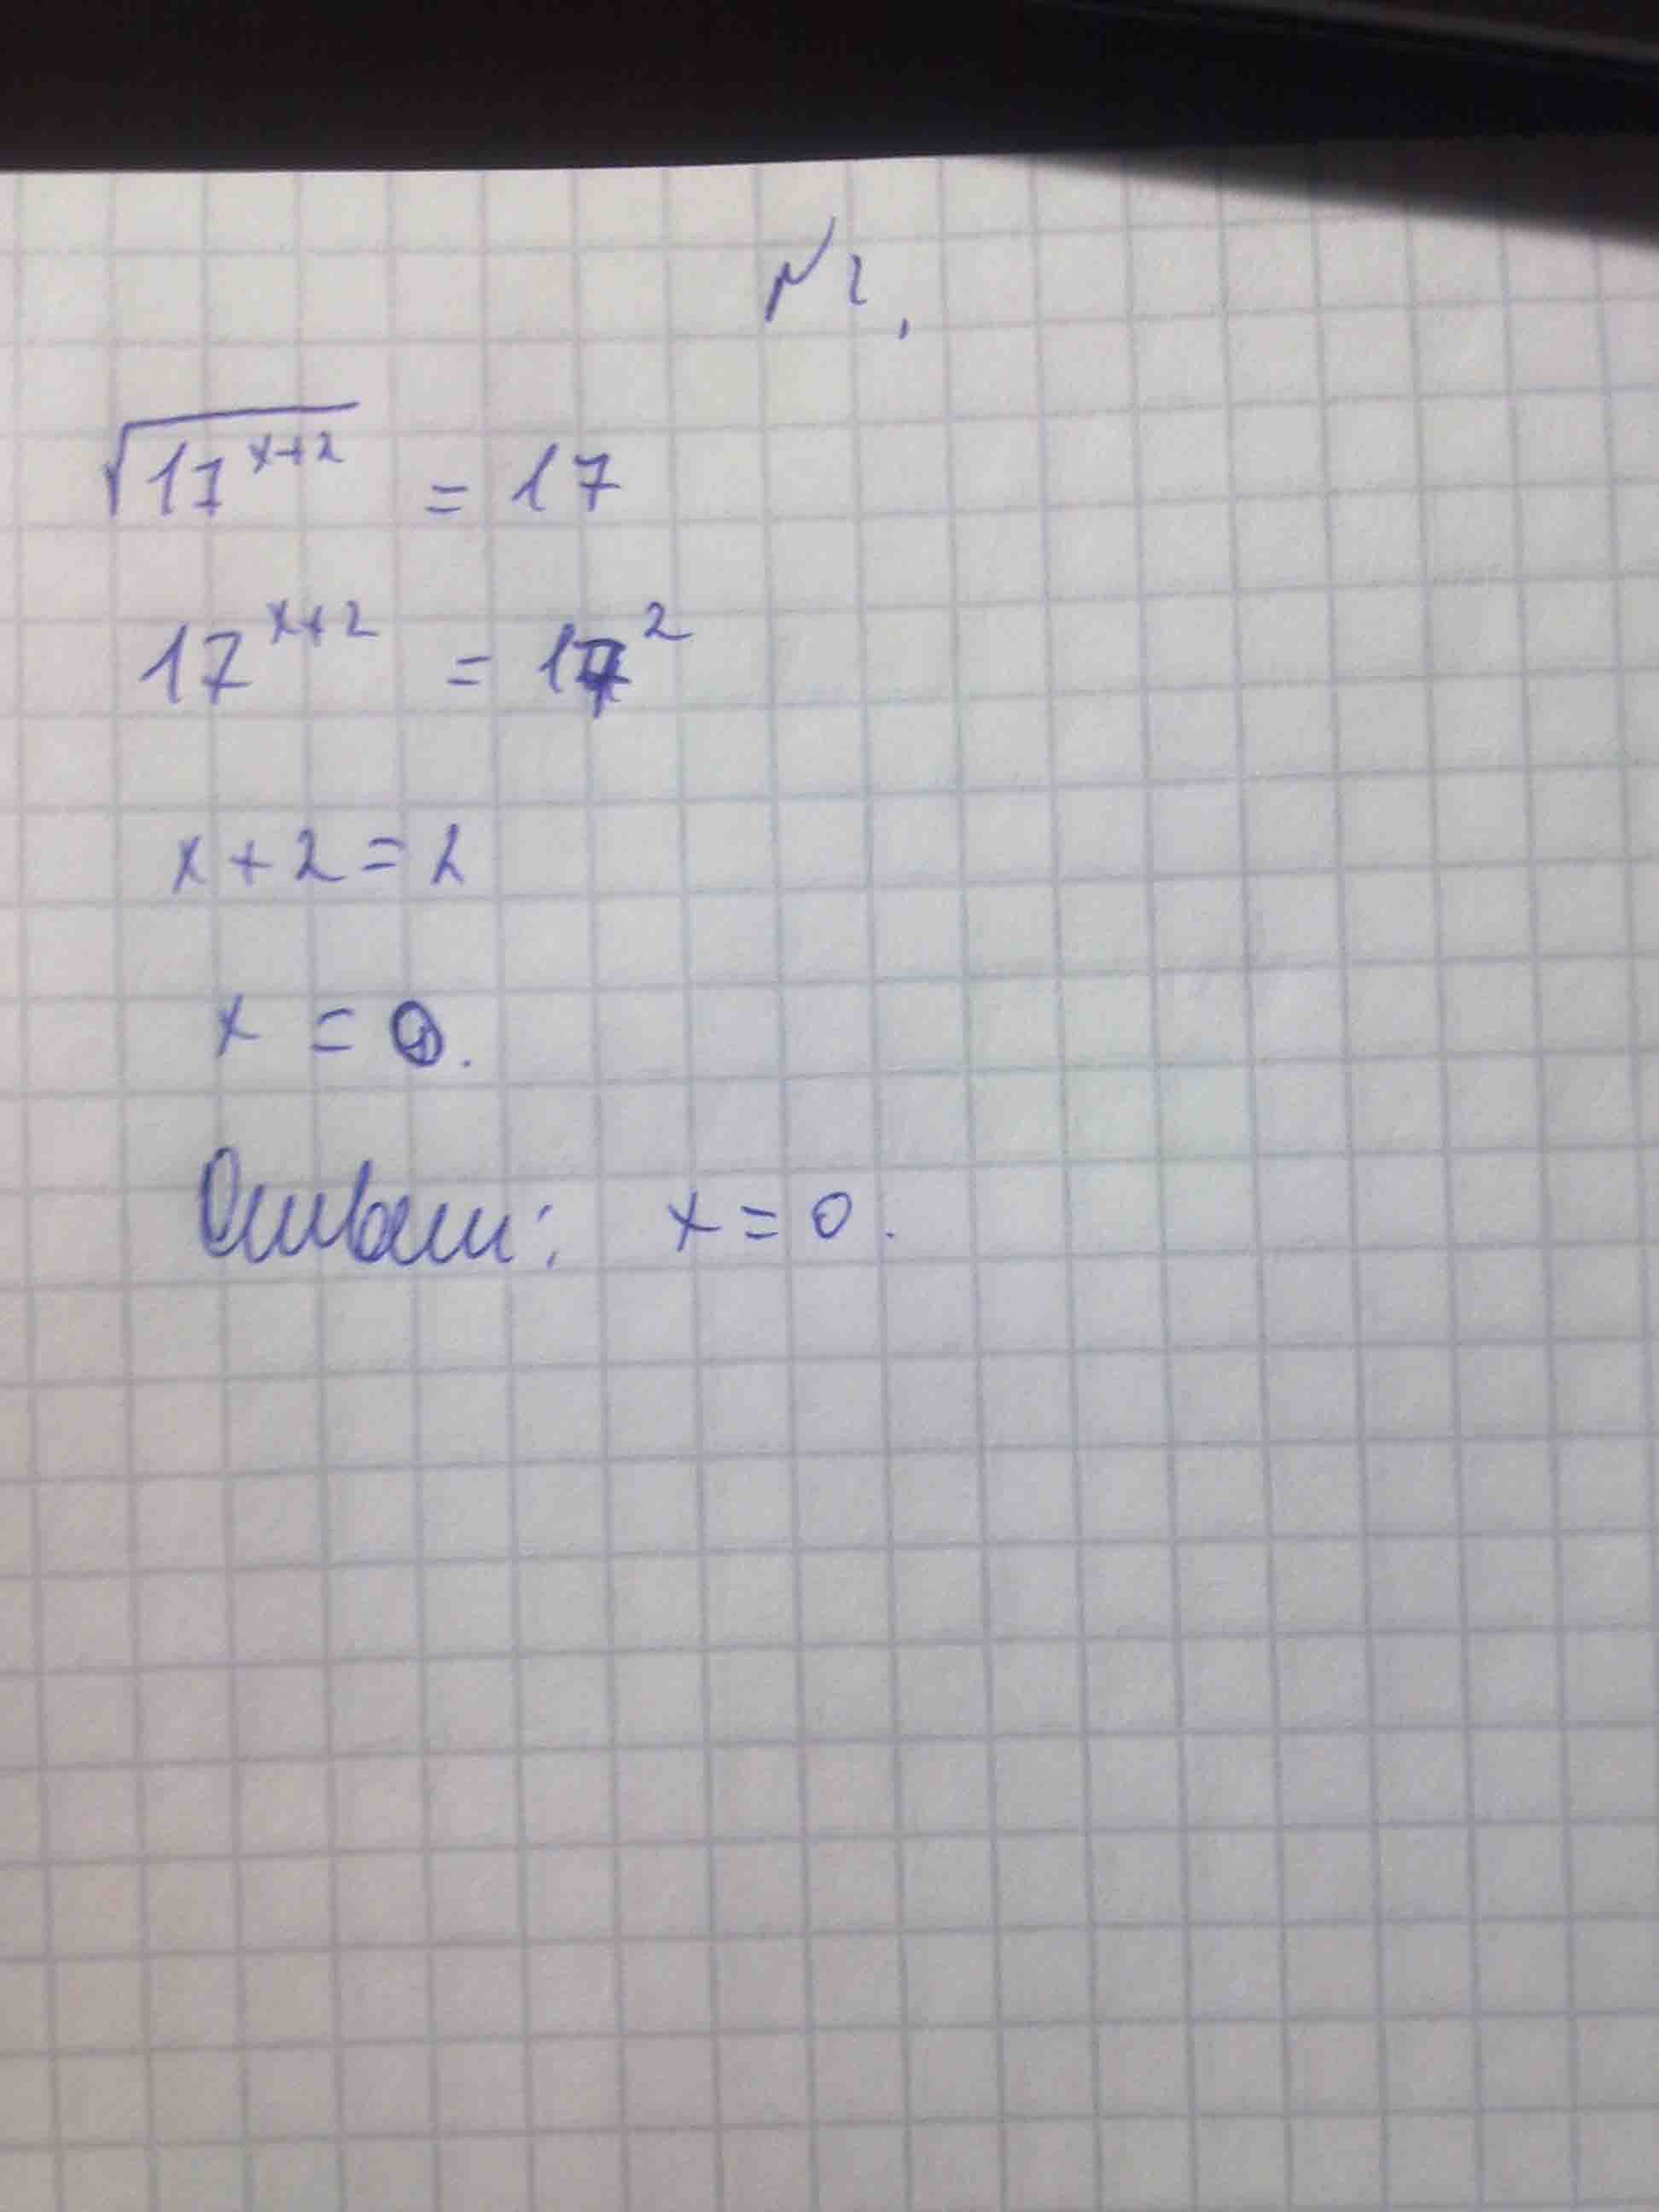 √17^{x+2} = 17
17^{x+2} = 17^2
x+2=2
x = 0.
Ответ: x=0.